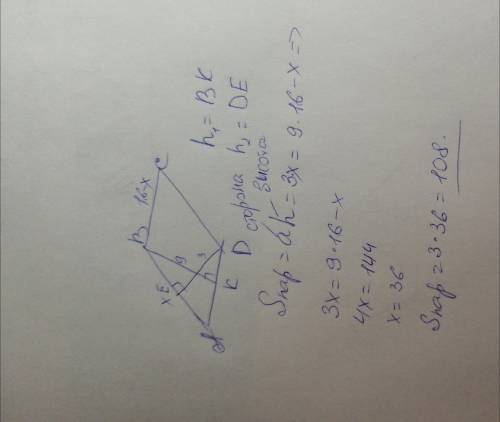 B 16-x C
x E 9 3
A K D
h₁ = BK
h₂ = DE
сторона высота
Sпар = ah = 3x = 9·16-x =>
3x = 9·16-x
4x = 144
x = 36
Sпар = 3·36 = 108.